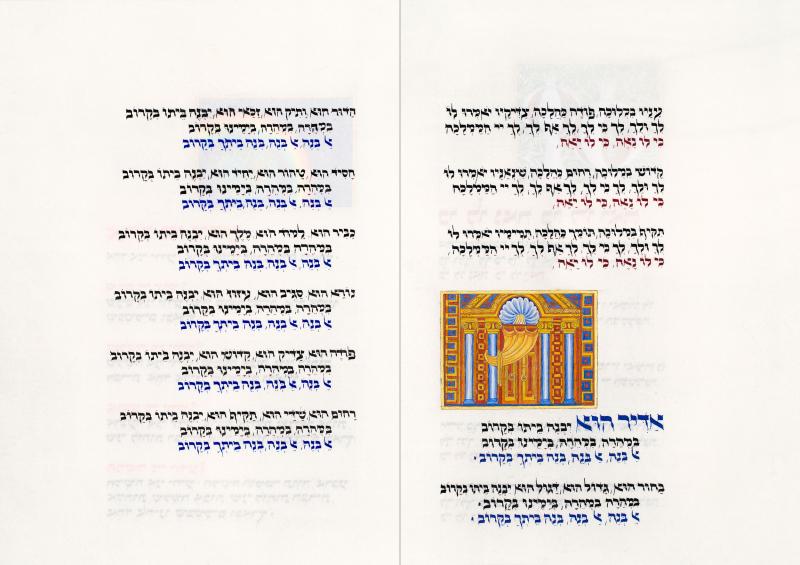 עניו במלוכה, פודה כהלכה, צדיקיו יאמרו לו
לך ולך, לך כי לך, לך אף לך, לך יי הממלכה
כי לו נאה, כי לו יאה,
קדוש במלוכה, רחום כהלכה, שנאניו יאמרו לו
לך ולך, לך כי לך, לך אף לך, לך יי הממלכה
כי לו נאה, כי לו יאה,
תקיף במלוכה, תומך כהלכה, תמימיו יאמרו לו
לך ולך, לך כי לך, לך אף לך, לך יי הממלכה,
כי לו נאה, כי לו יאה,
אדיר הוא יבנה ביתו בקרוב
במהרה, במהרה, בימינו בקרוב
ﭏ בנה, ﭏ בנה, בנה ביתך בקרוב.
בחור הוא, גדול הוא, דגול הוא, יבנה ביתו בקרוב
במהרה במהרה, בימינו בקרוב.
ﭏ בנה, ﭏ בנה, בנה ביתך בקרוב.
הדור הוא, ותיק הוא, זכאי הוא, יבנה ביתו בקרוב
במהרה, במהרה, בימינו בקרוב
ﭏ בנה, ﭏ בנה, בנה ביתך בקרוב
חסיד הוא, טהור הוא, יחיד הוא, יבנה ביתו בקרוב
במהרה, במהרה, בימינו בקרוב
ﭏ בנה, ﭏ בנה, בנה ביתך בקרוב
כביר הוא, למוד הוא, מלך הוא, יבנה ביתו בקרוב
במהרה, במהרה, בימינו בקרוב
ﭏ בנה, ﭏ בנה, בנה ביתך בקרוב
נורא הוא, סגיב הוא, עזוז הוא, יבנה ביתו בקרוב
במהרה, במהרה, בימינו בקרוב
ﭏ בנה, ﭏ בנה, בנה ביתך בקרוב
פודה הוא, צדיק הוא, קדוש הוא, יבנה ביתו בקרוב
במהרה, במהרה, בימינו בקרוב
ﭏ בנה, ﭏ בנה, בנה ביתך בקרוב
רחום הוא, שדי הוא, תקיף הוא, יבנה ביתו בקרוב
במהרה, במהרה, בימינו בקרוב
ﭏ בנה, ﭏ בנה, בנה ביתך בקרוב